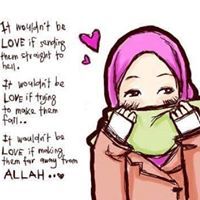 It wouldn't be
LOVE if sending
them straight to
hell.
It wouldn't be
LOVE if trying
to make them
fall..
It wouldn't be
LOVE if making
them far away from
ALLAH..